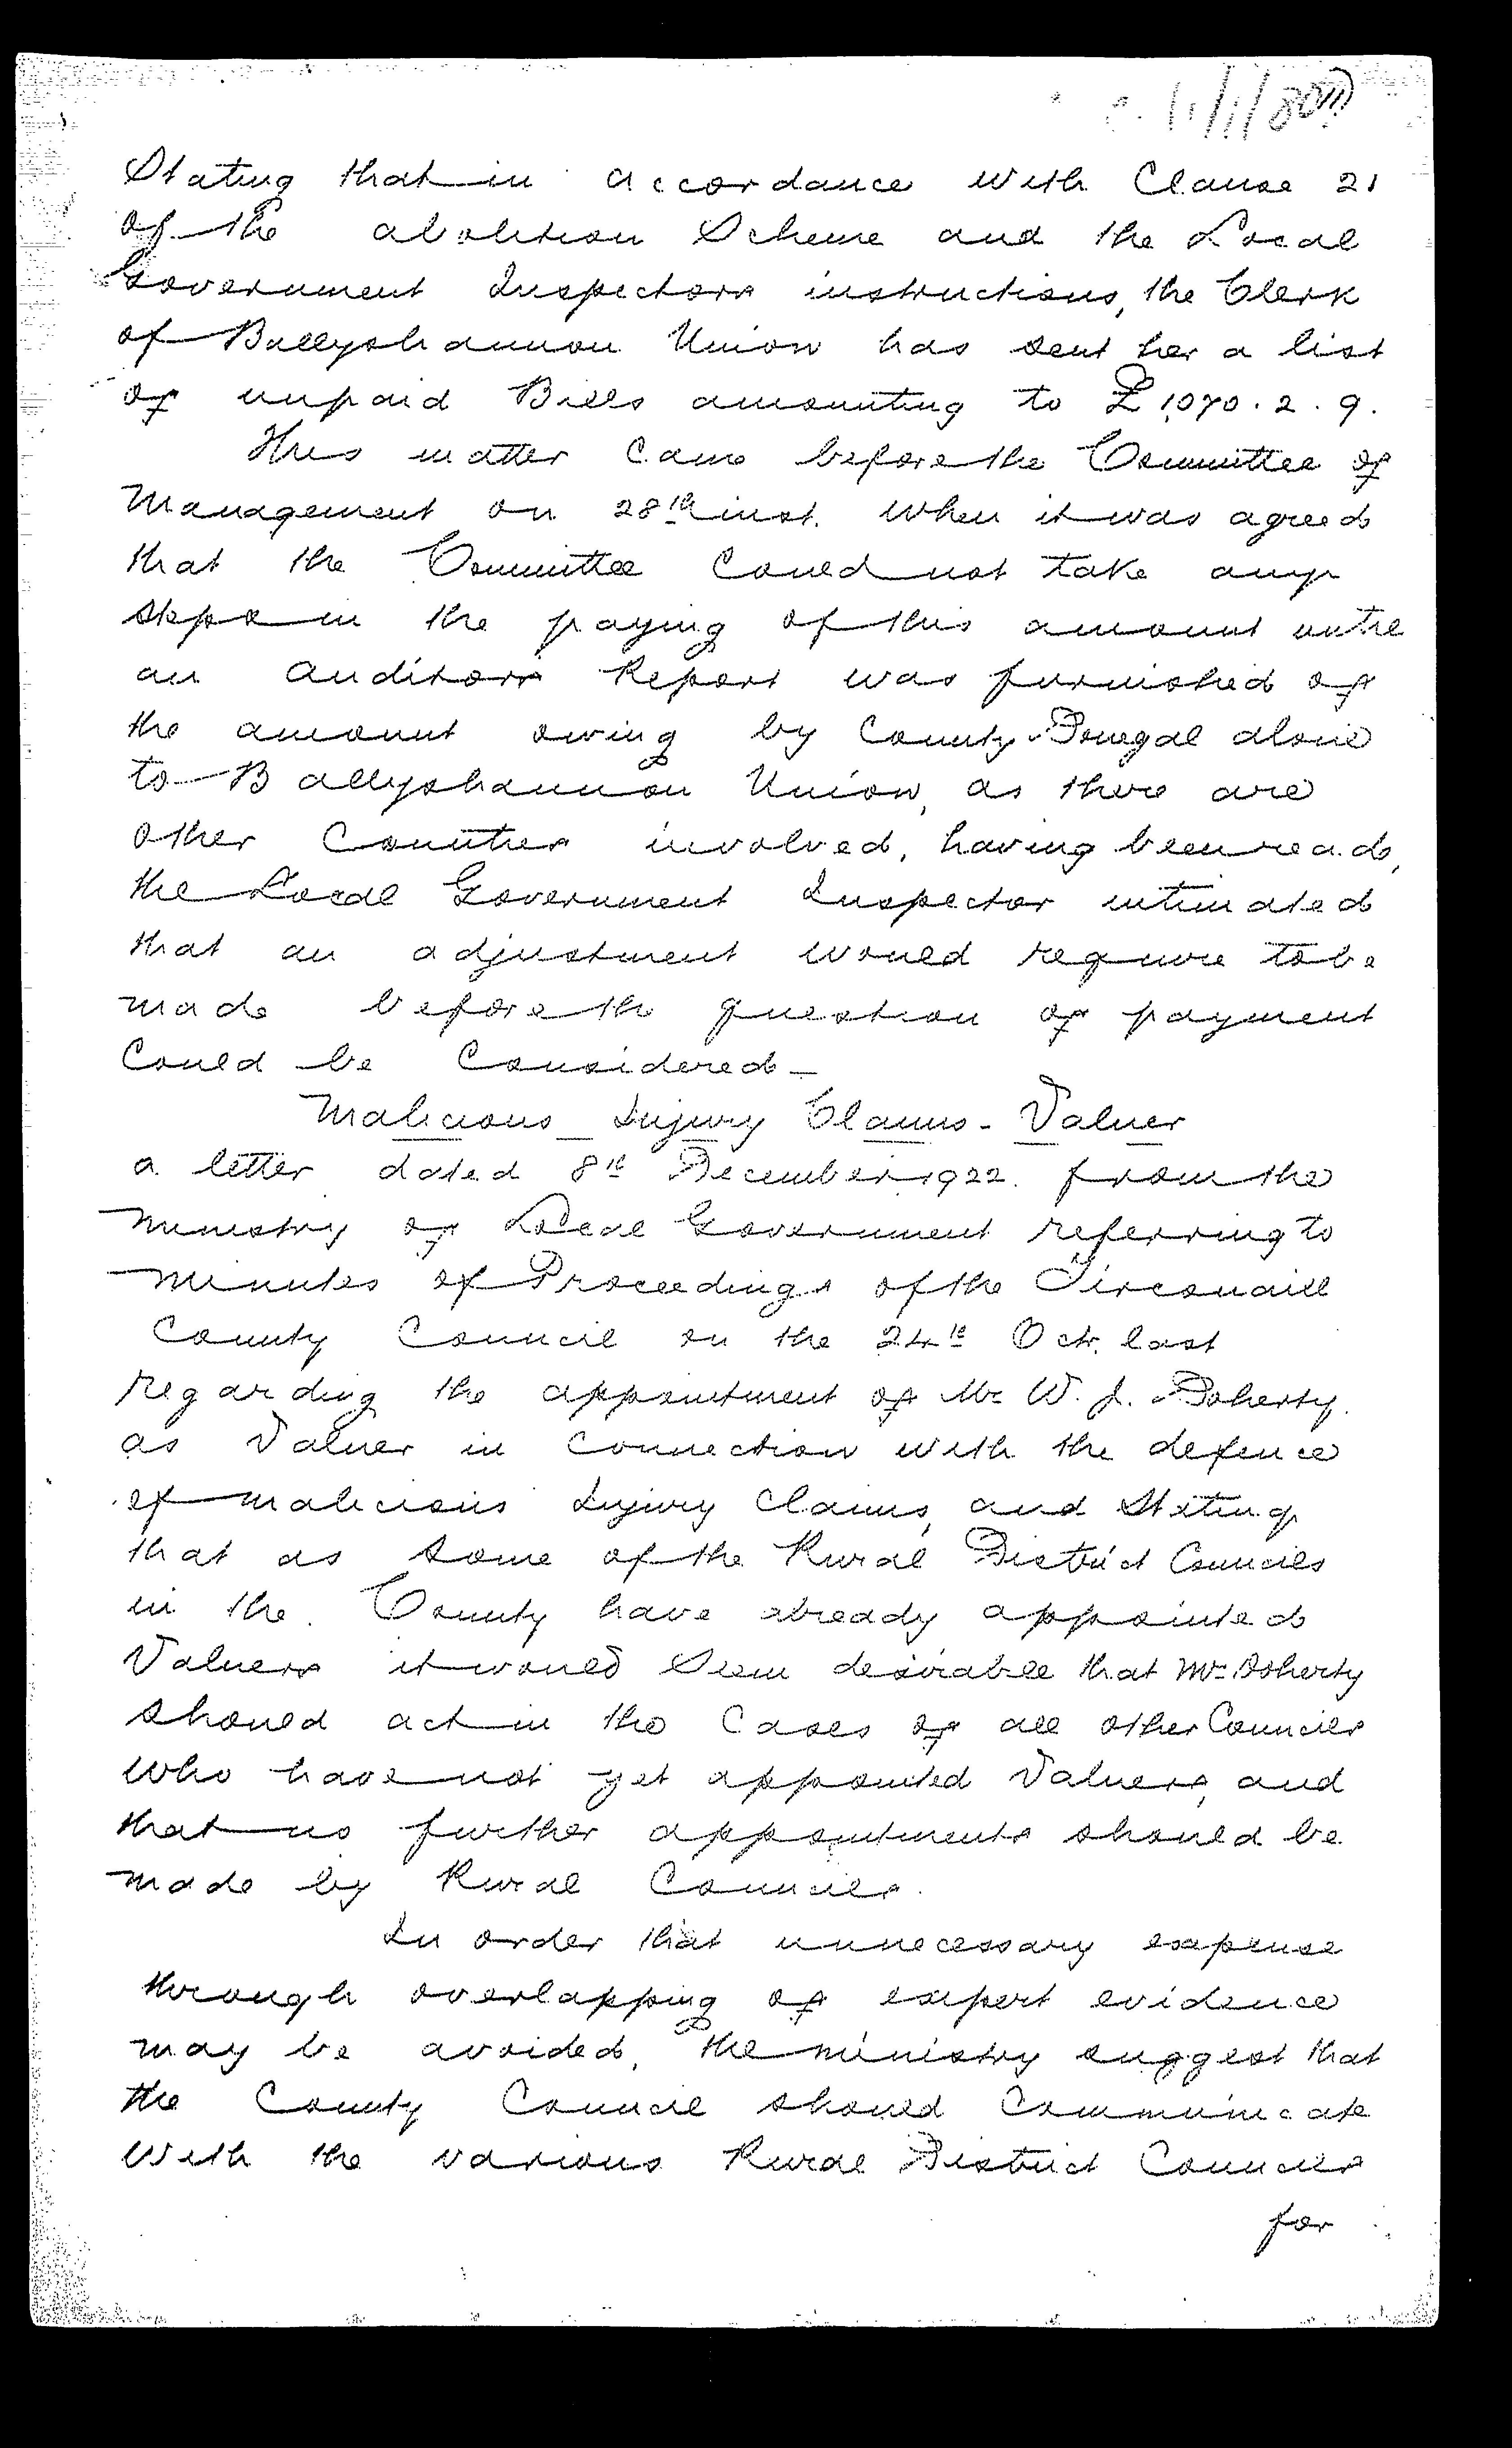 Stating that in accordance with Clause 21
of the abolition Scheme and the Local
Government Inspectors instructions, the Clerk
of Ballyshannon Union has sent her a list
of unpaid Bills amounting to £1,070.2.9.
This matter came before the Committee of
Management on 28th inst. when it was agreed
that the Committee could not take any
steps in the paying of this amount until
an Auditors Report was furnished of
the amount owing by County Donegal alone
to Ballyshannon Union, as there are
other Counties involved, having been read,
the Local Government Inspector intimated
that an adjustment would require to be
made before the question of payment
could be considered -
Malicious Injury Claims - Valuer
a letter dated 8th December 1922. from the
Ministry of Local Government referring to
minutes of Proceedings of the Tirconaill
County Council on the 24th Octr. last
regarding the appointment of Mr W. J. Doherty.
as Valuer in connection with the defence
of malicious Injury Claims, and Stating
that as some of the Rural District Councils
in the County have already appointed
Valuers it would seem desirable that Mr. Doherty
should act in the Cases of all other Councils
who have not yet appointed Valuers, and
that no further appointments should be
made by Rural Councils.
In order that unnecessary expense
through overlapping of expert evidence
may be avoided, the ministry suggest that
the County Council should Communicate
with the various Rural District Councils
for